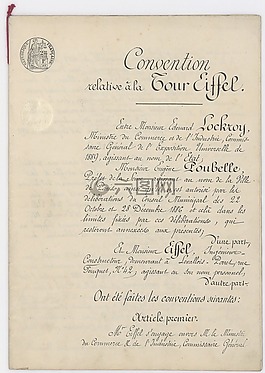 Convention
relative à la Tour Eiffel.
Entre Monsieur Edouard Lockroy,
Ministre du Commerce et de l'Industrie, Commis-
saire Général de l'Exposition Universelle de
1889, agissant au nom de l'Etat,
Monsieur Eugène Poubelle,
Préfet de la Seine, au nom de la Ville
de autorisé par les
délibérations du Conseil Municipal des 22
Octobre et 28 Décembre 1886 et cela dans les
limites fixées par ces délibérations, qui
resteront annexées aux présentes;
D'une part,
Et Monsieur Eiffel, Ingénieur-
Constructeur demeurant à Levallois-Perret, rue
Fouquet, N° 42, agissant en son nom personnel,
D'autre part.
Ont été faites les conventions suivantes:
Article premier.
Mr Eiffel s'engage envers M. le Ministre
du Commerce & de l'Industrie, Commissaire Général